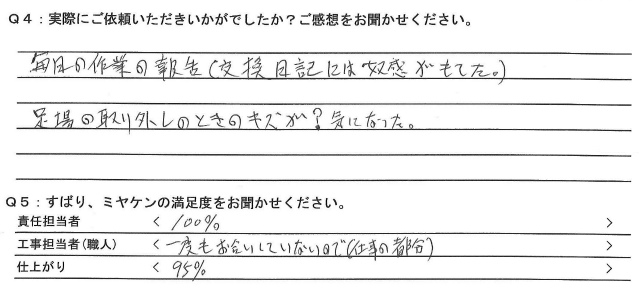 Q4：実際にご依頼いただきいかがでしたか？ご感想をお聞かせください。
毎日の作業の報告（交換日記には好感がもてた。）
足場の取り外しのときのキズが？気になった。
Q5：ずばり、ミヤケンの満足度をお聞かせください。
責任担当者 < 100% >
工事担当者（職人） < 一度もお会いしていないので（仕事の都合） >
仕上がり < 95% >